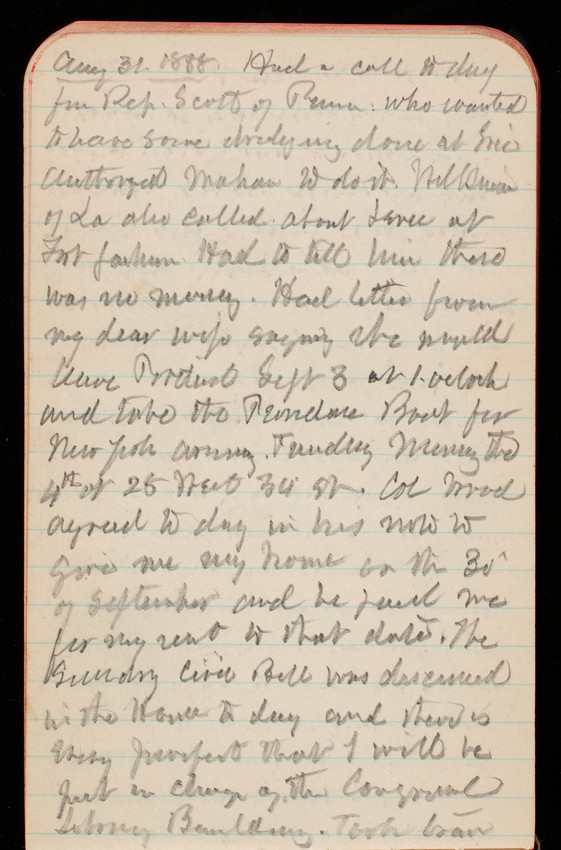 Aug 31. 1888. Had a call to day
from Rep. Scott of Penn. who wanted
to have some dredging done at Erie
Authorized Mahan to do it.
of La also called about Levee at
Fort Jackson Had to tell him there
was no money. Had letter from
my dear wife saying she would
leave Portland Sept 3 at 1 oclock
and take the Providence Boat for
New York arriving Tuesday Morning the
4th at 25 West 34 St. Col Wood
agreed to day in his note to
give me my home on the 30
of September and he paid me
for my rent to that date. The
Sundry Civil Bill was discussed
in the House to day and there is
every prospect that I will be
put in charge of the Congressnl
Library Building. Took train